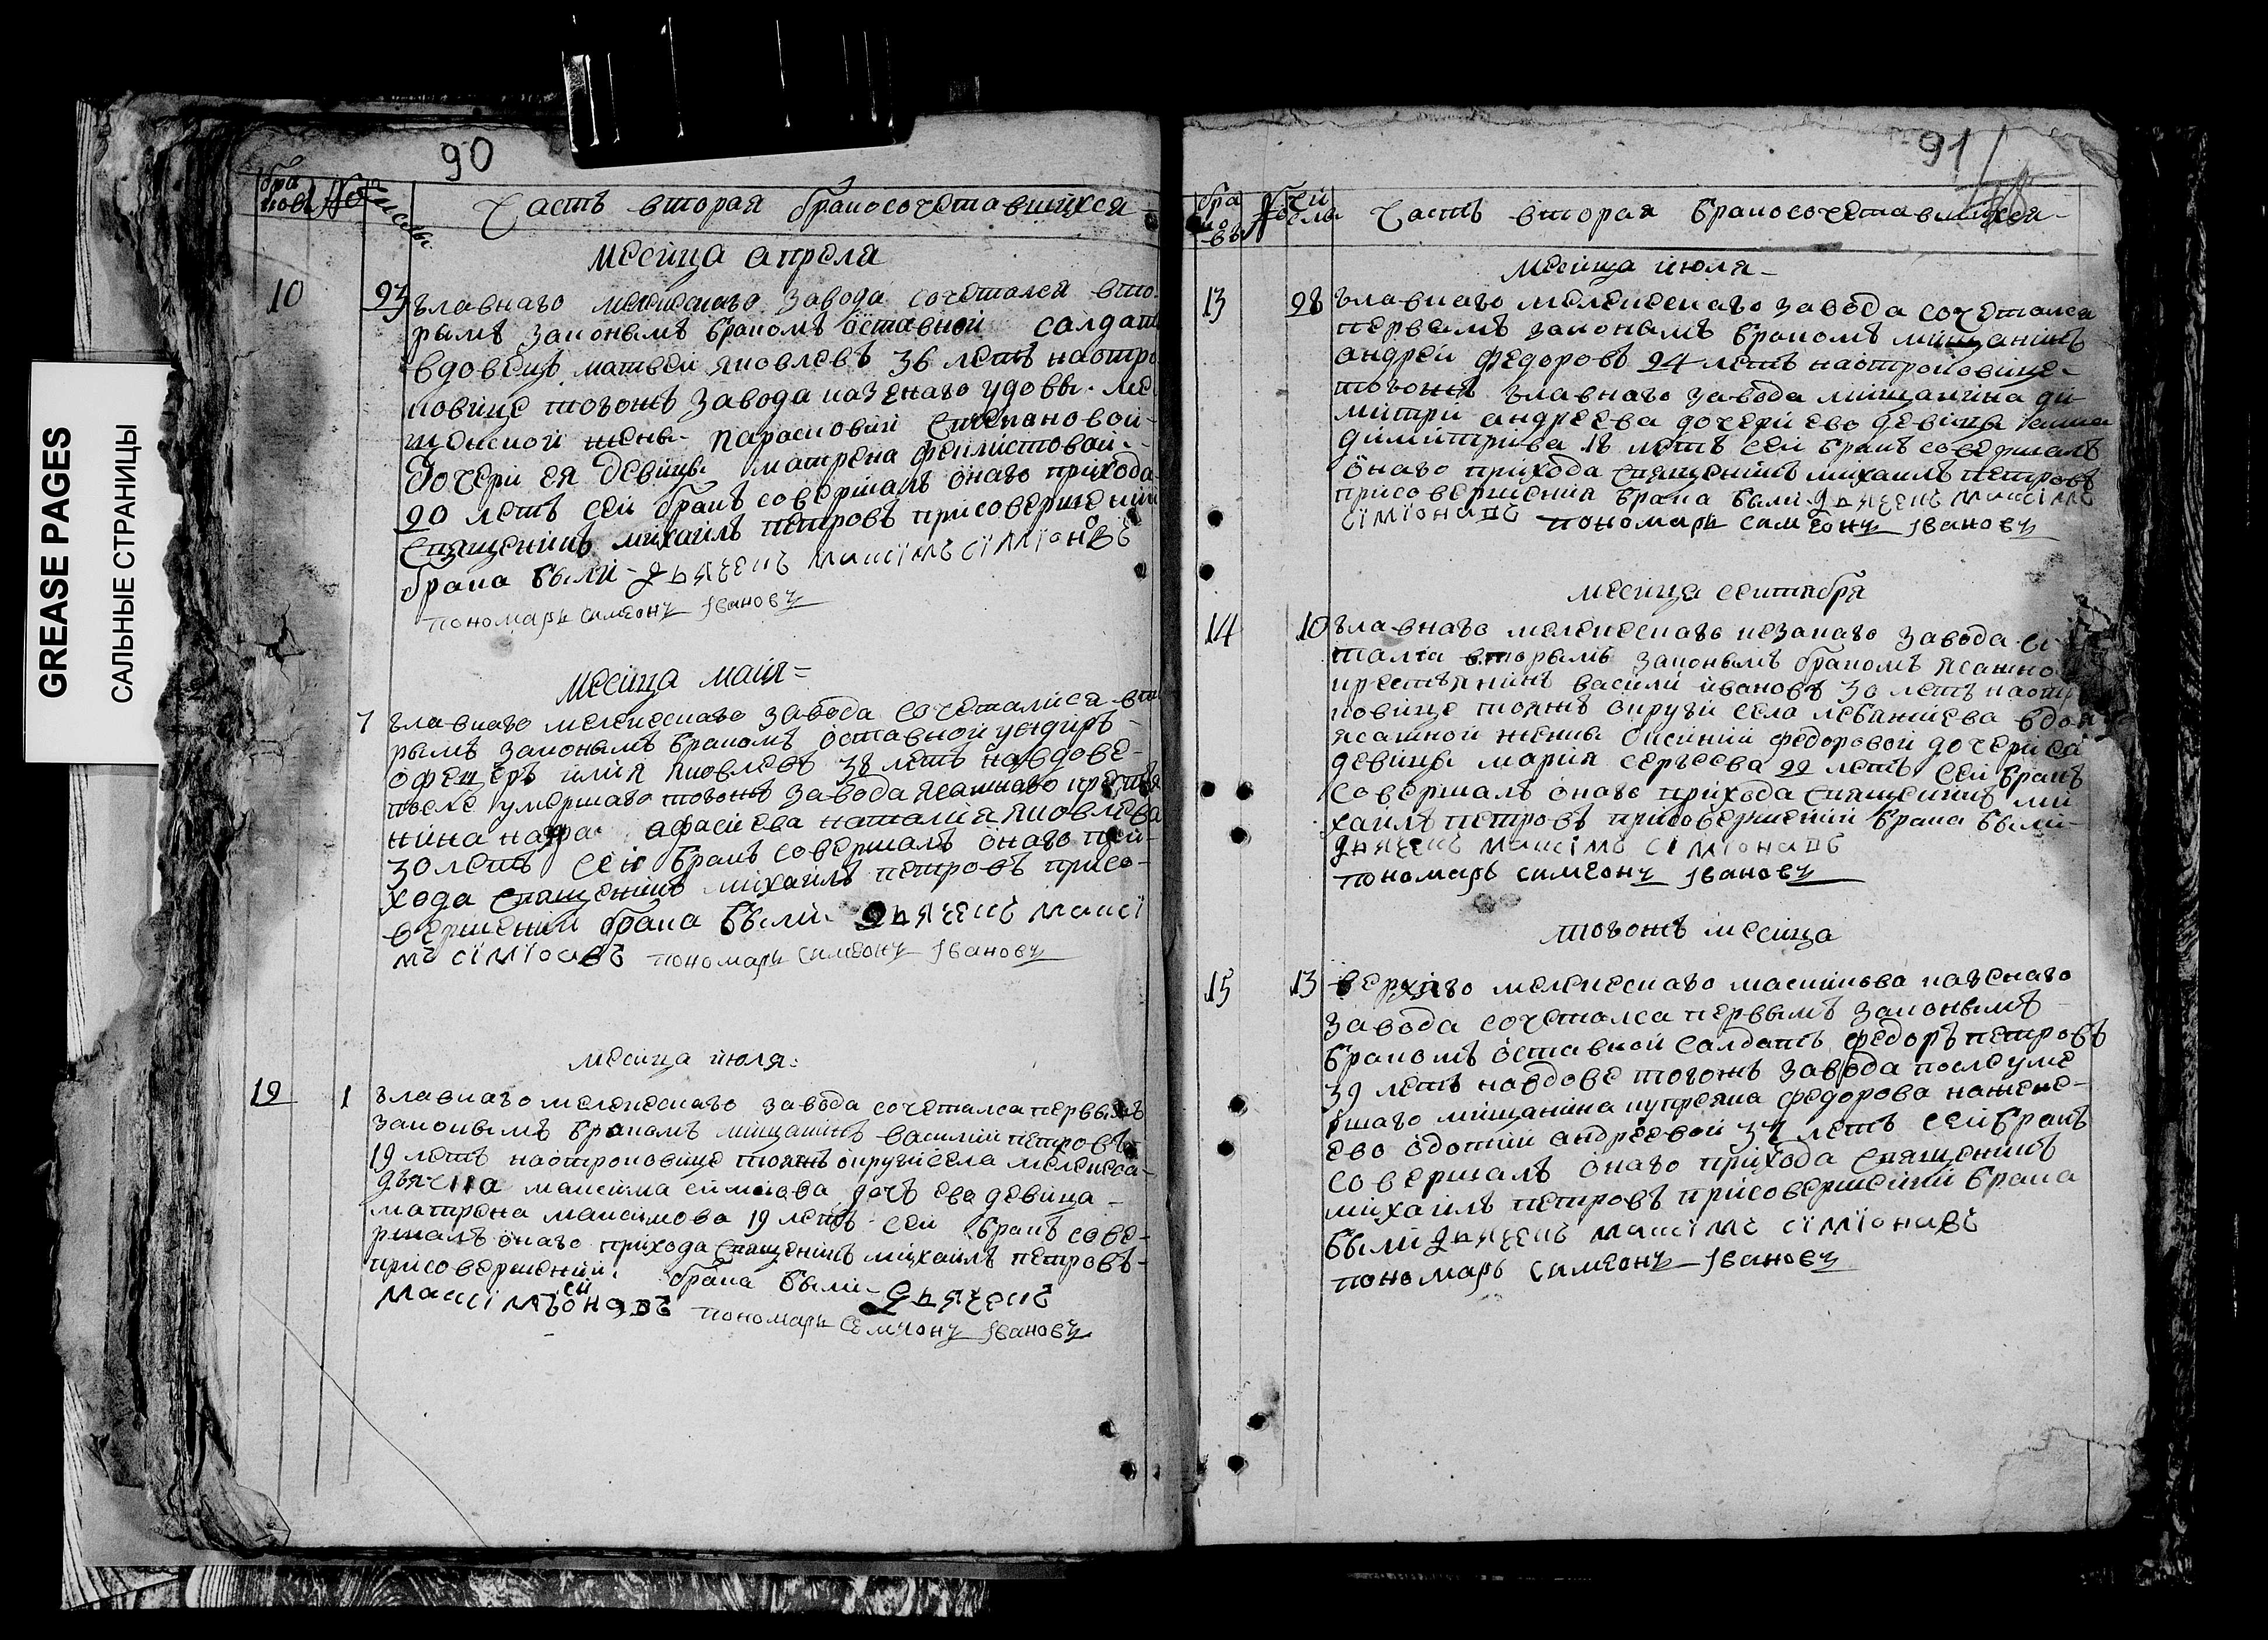 GREASE PAGES
САЛЬНЫЕ СТРАНИЦЫ
90
бра
ковъ
числы
Часть вторая бракосочетавшихся
месяца апреля
10
23
главнаго мелекескаго завода сочетался вто
рымъ законымъ бракомъ оставной салдатъ
вдовецъ матвей яковлевъ 36 летъ наотро
ковице тогожъ завода казенаго удовы ме
щенской жены парасковии степановой
дочери ея девицы матрена филистовой
20 летъ сей бракъ совершалъ онаго прихода
священикъ михаилъ петровъ присовершении
брака были дьячекъ максимъ симионовъ
пономарь симеонъ Ивановъ
месяца маия
7
главнаго мелекескаго завода сочетался вто
рымъ законымъ бракомъ оставной ундиръ
офецеръ илия яковлевъ 38 летъ навдове
после умершаго тогожъ завода ясашнаго крестья
нина афасиева наталия яковлева
30 летъ сей бракъ совершалъ онаго при
хода священикъ михаилъ петровъ присо
вершении брака были дьячекъ макси
мъ симионавъ пономарь симеонъ Ивановъ
месяца июля
12
1
главнаго мелекескаго завода сочетался первымъ
законымъ бракомъ мищанинъ василий петровъ
19 летъ наотроковице тояжъ округи села мелекеса
дьячка максима симиова дочь ево девица
матрона максимова 19 летъ сей бракъ сове
ршалъ онаго прихода священикъ михаилъ петровъ
присовершении брака были дьячекъ
максимъ сионавъ пономарь семионъ Ивановъ
91
бра
ко
въ
Часть вторая бракосочетавшихся
месяца июля
13
28
главнаго мелекескаго завода сочетался
первымъ законымъ бракомъ мищанинъ
андрей федоровъ 24 летъ наотроковице
тогожъ главнаго завода мищанина ди
митри андреева дочери ево девицы
димитрива 18 летъ сей бракъ совершалъ
онаго прихода священикъ михаилъ петровъ
присовершении брака были дьячекъ максимъ
симионавъ пономарь симеонъ Ивановъ
месяца сентября
14
10
главнаго мелекескаго казанаго завода со
тался вторымъ законымъ бракомъ ясашно
крестьянинъ василий ивановъ 30 летъ наотр
ковице тояжъ округи села лебяжиева вдов
ясашной жены ксении федоровой дочери ея
девицы мария сергеева 22 летъ сей бракъ
совершалъ онаго прихода священикъ ми
хаилъ петровъ присовершении брака были
дьячекъ максимъ симионавъ
пономарь симеонъ Ивановъ
тогожъ месяца
15
13
верхняго мелекескаго максимова казенаго
завода сочетался первымъ законымъ
бракомъ оставной салдатъ федоръ петровъ
39 летъ навдове тогожъ завода после уме
ршаго мищанина купреяна федорова нажене
ево овдотии андреевой 37 летъ сей бракъ
совершалъ онаго прихода священикъ
михаилъ петровъ присовершении брака
были дьячекъ максимъ симионавъ
пономарь симеонъ Ивановъ